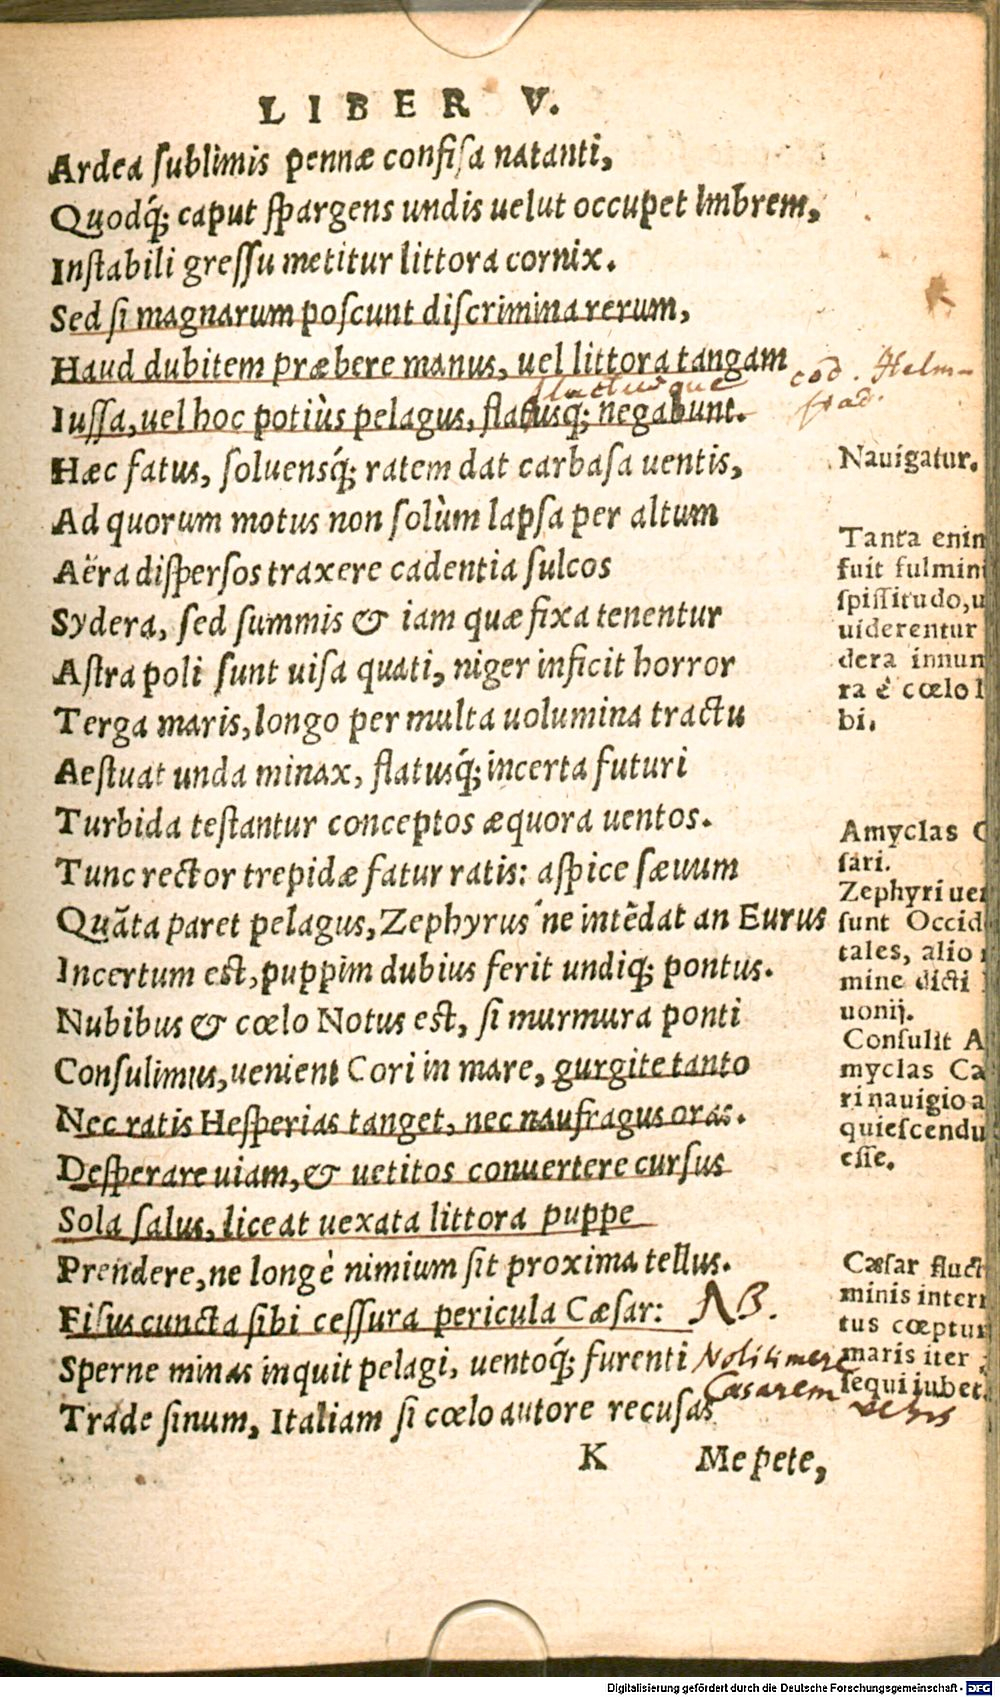 LIBER V.
Ardea sublimis pennæ confisa natanti,
Quodq́; caput spargens undis uelut occupet Imbrem,
Instabili gressu metitur littora cornix.
Sed si magnarum poscunt discrimina rerum,
Haud dubitem præbere manus, uel littora tangam
fluctusque
cod. Helm-
stad.
Iussa, uel hoc potiùs pelagus, flatusq́; negabunt.
Hæc fatus, soluensq́; ratem dat carbasa uentis,
Nauigatur.
Ad quorum motus non solùm lapsa per altum
Aëra dispersos traxere cadentia sulcos
Sydera, sed summis & iam quæ fixa tenentur
Astra poli sunt uisa quati, niger inficit horror
Terga maris, longo per multa uolumina tractu
Tanta enim
fuit fulmini
spissitudo, u
uiderentur
dera innum
ra è cœlo l
bi.
Aestuat unda minax, flatusq́; incerta futuri
Turbida testantur conceptos æquora uentos.
Tunc rector trepidæ fatur ratis: aspice sæuum
Quãta paret pelagus, Zephyrus ́ne intẽdat an Eurus
Incertum est, puppim dubius ferit undiq; pontus.
Nubibus & cœlo Notus est, si murmura ponti
Amyclas C
sari.
Zephyri uen
sunt Occid
tales, alio n
mine dicti
uonij.
Consulimus, uenient Cori in mare, gurgite tanto
Nec ratis Hesperias tanget, nec naufragus oras.
Desperare uiam, & uetitos conuertere cursus
Consulit A
myclas Ca
ri nauigio a
quiescendu
esse.
Sola salus, liceat uexata littora puppe
Prendere, ne longè nimium sit proxima tellus.
Fisus cuncta sibi cessura pericula Cæsar:
NB.
Sperne minas inquit pelagi, uentoq́; furenti
Noli timere
Cæsarem
vehis
Trade sinum, Italiam si cœlo autore recusas
Cæsar fluct
minis interr
tus cœptum
maris iter
sequi iubet.
K Me pete,
Digitalisierung gefördert durch die Deutsche Forschungsgemeinschaft - DFG